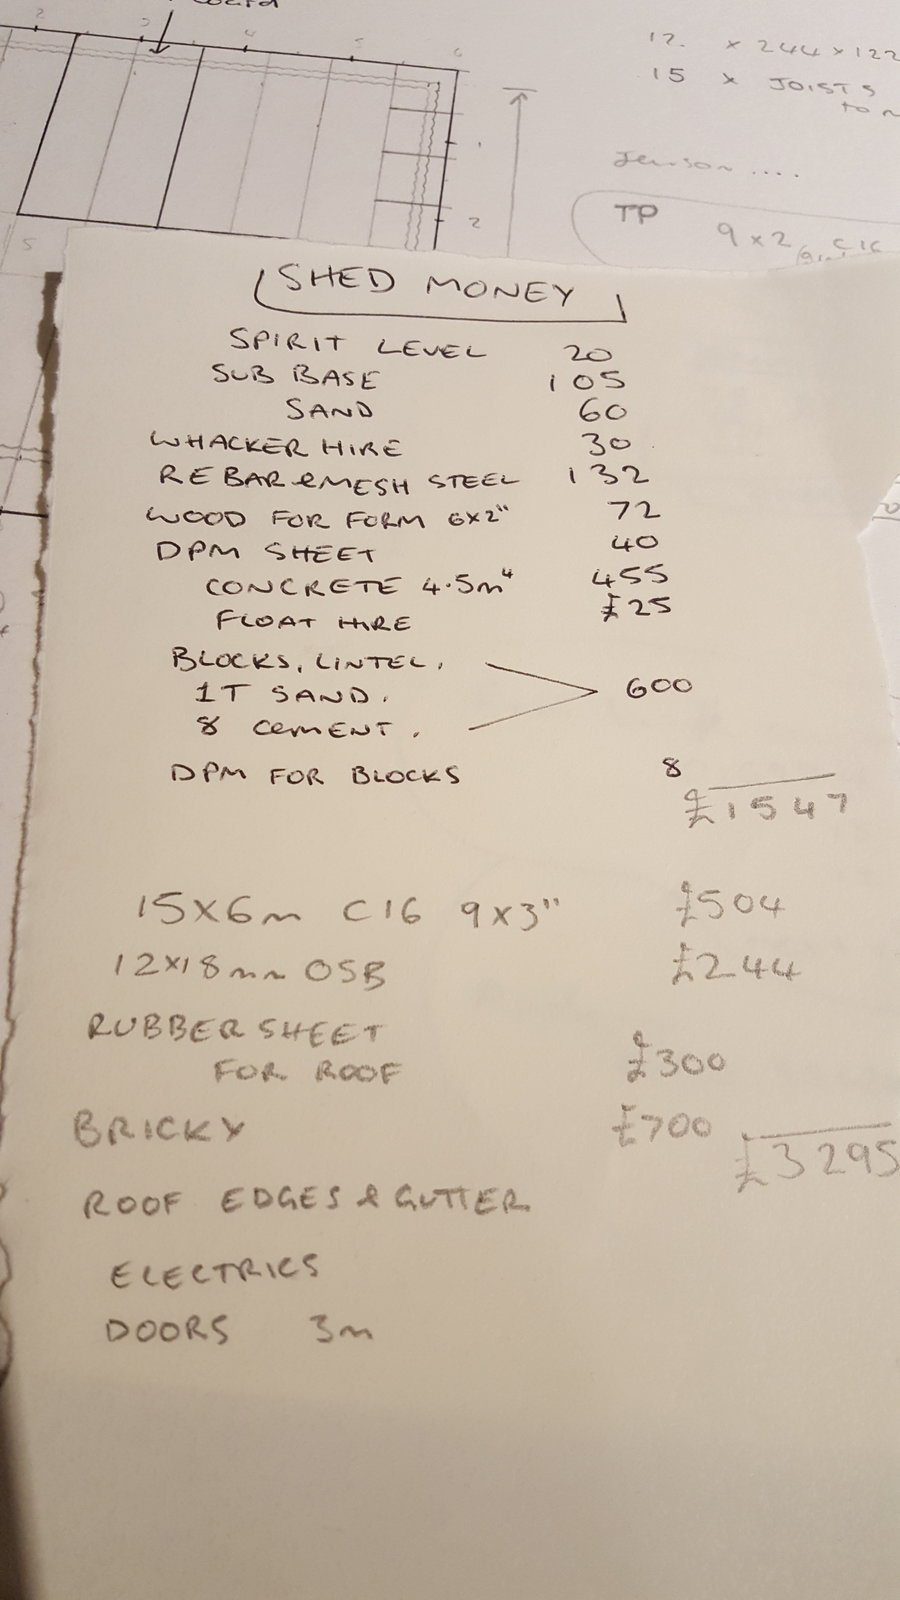 2 3 4 5 6
12. x 244 x 122
15 x JOISTS
1
2
5
TP 9 x 2 C16
SHED MONEY
SPIRIT LEVEL 20
SUB BASE 105
SAND 60
WHACKER HIRE 30
REBAR & MESH STEEL 132
WOOD FOR FORM 6X2" 72
DPM SHEET 40
CONCRETE 4.5m⁴ 455
FLOAT HIRE £25
BLOCKS, LINTEL.
1T SAND. 600
8 CEMENT.
DPM FOR BLOCKS 8
£1547
15X6m C16 9X3" £504
12X18mm OSB £244
RUBBER SHEET
FOR ROOF £300
BRICKY £700
£3295
ROOF EDGES & GUTTER
ELECTRICS
DOORS 3m